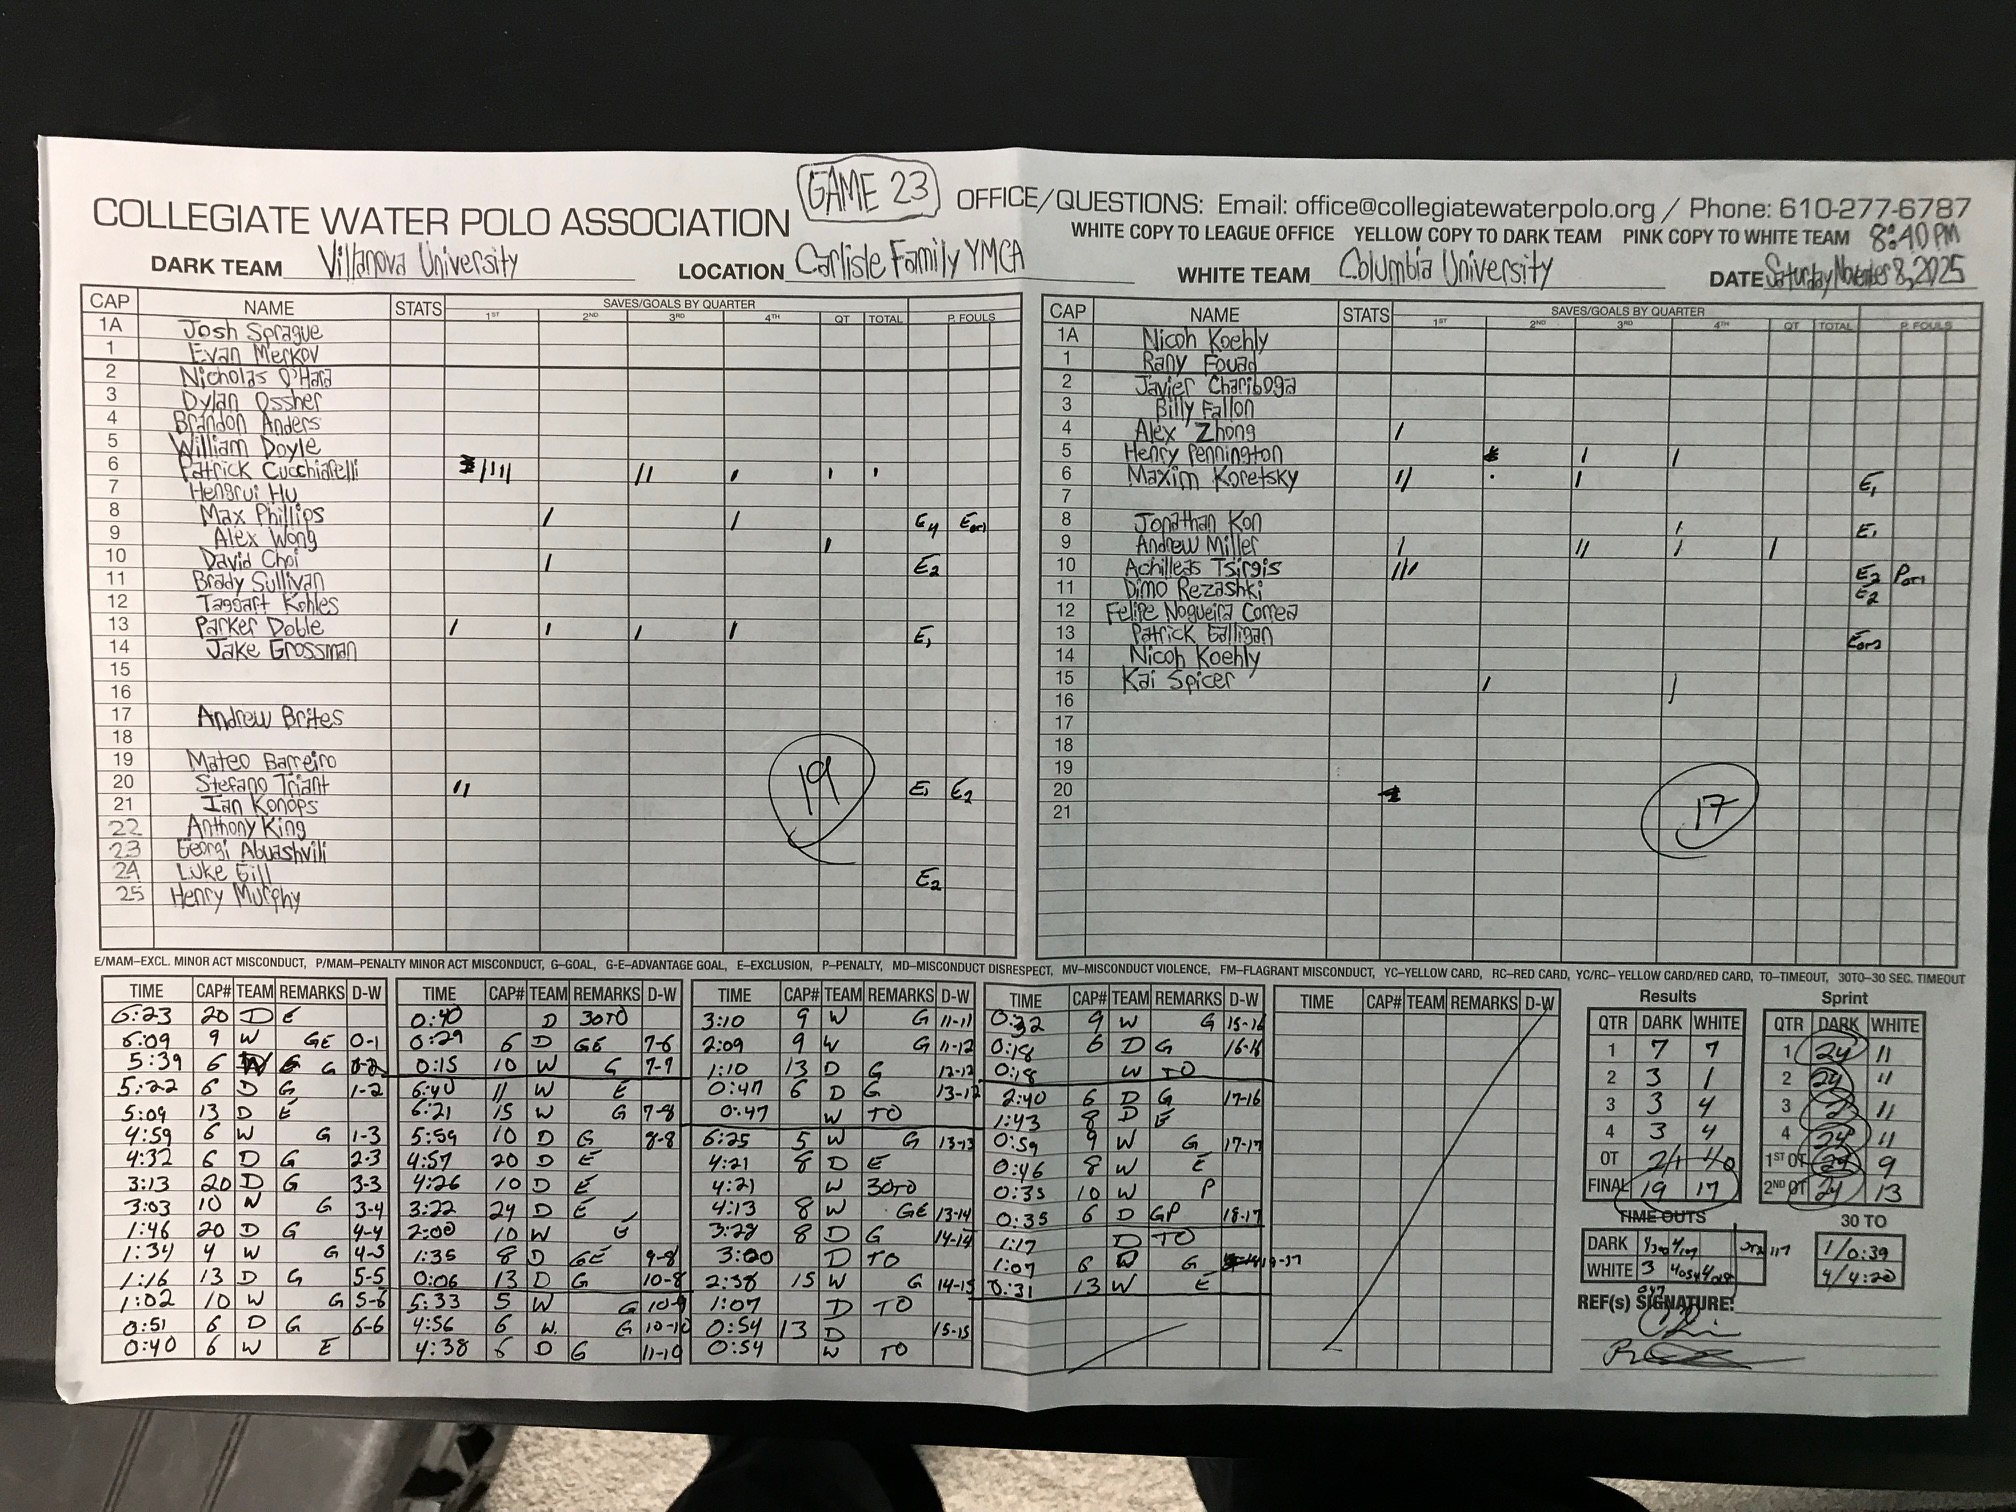 GAME 23
COLLEGIATE WATER POLO ASSOCIATION OFFICE/QUESTIONS: Email: office@collegiatewaterpolo.org / Phone: 610-277-6787
WHITE COPY TO LEAGUE OFFICE YELLOW COPY TO DARK TEAM PINK COPY TO WHITE TEAM 8:40PM
DARK TEAM Villanova University LOCATION Carlisle Family YMCA WHITE TEAM Columbia University DATE Saturday November 8, 2025
CAP NAME STATS SAVES/GOALS BY QUARTER
1ST 2ND 3RD 4TH OT TOTAL P. FOULS
1A Josh Sprague
1 Evan Merkov
2 Nicholas O'Hara
3 Dylan Ossher
4 Brandon Anders
5 William Doyle
6 Patrick Cucchiarelli //// // / ' '
7 Hengrui Hu
8 Max Phillips / / E4
9 Alex Wong /
10 David Choi / E2
11 Brady Sullivan
12 Taggart Kohles
13 Parker Doble / / / / E1
14 Jake Grossman
15
16
17 Andrew Brites
18
19 Mateo Barreiro
20 Stefano Triant // E1 E2
21 Ian Konops
22 Anthony King
23 Georgi Abuashvili
24 Luke Gill E2
25 Henry Murphy
19
CAP NAME STATS SAVES/GOALS BY QUARTER
1ST 2ND 3RD 4TH OT TOTAL P. FOULS
1A Nicoh Koehly
1 Rany Fouad
2 Javier Chariboga
3 Billy Fallon
4 Alex Zhong /
5 Henry Pennington / /
6 Maxim Koretsky // ' / E1
7
8 Jonathan Kon / E1
9 Andrew Miller / // / /
10 Achilleas Tsirgis /// E2
11 Dimo Rezashki E2
12 Felipe Nogueira Correa
13 Patrick Galligan
14 Nicoh Koehly
15 Kai Spicer / /
16
17
18
19
20
21
17
E/MAM–EXCL. MINOR ACT MISCONDUCT, P/MAM–PENALTY MINOR ACT MISCONDUCT, G–GOAL, G-E–ADVANTAGE GOAL, E–EXCLUSION, P–PENALTY, MD–MISCONDUCT DISRESPECT, MV–MISCONDUCT VIOLENCE, FM–FLAGRANT MISCONDUCT, YC–YELLOW CARD, RC–RED CARD, YC/RC–YELLOW CARD/RED CARD, TO–TIMEOUT, 30TO–30 SEC. TIMEOUT
TIME CAP# TEAM REMARKS D-W
6:23 20 D E
6:09 9 W GE 0-1
5:39 6 W G 0-2
5:22 6 D G 1-2
5:09 13 D E
4:59 6 W G 1-3
4:32 6 D G 2-3
3:13 20 D G 3-3
3:03 10 W G 3-4
1:46 20 D G 4-4
1:34 4 W G 4-5
1:16 13 D G 5-5
1:02 10 W G 5-6
0:51 6 D G 6-6
0:40 6 W E
TIME CAP# TEAM REMARKS D-W
0:40 D 30TO
0:29 6 D GE 7-6
0:15 10 W G 7-7
6:40 11 W E
6:21 15 W G 7-8
5:59 10 D G 8-8
4:57 20 D E
4:26 10 D E
3:22 24 D E
2:00 10 W E
1:35 8 D GE 9-8
0:06 13 D G 10-8
5:33 5 W G 10-9
4:56 6 W G 10-10
4:38 6 D G 11-10
TIME CAP# TEAM REMARKS D-W
3:10 9 W G 11-11
2:09 9 W G 11-12
1:10 13 D G 12-12
0:47 6 D G 13-12
0:47 W TO
6:25 5 W G 13-13
4:21 8 D E
4:21 W 30TO
4:13 8 W GE 13-14
3:28 8 D G 14-14
3:00 D TO
2:38 15 W G 14-15
1:07 D TO
0:54 13 D 15-15
0:54 W TO
TIME CAP# TEAM REMARKS D-W
0:32 9 W G 15-16
0:18 6 D G 16-16
0:18 W TO
2:40 6 D G 17-16
1:43 8 D E
0:59 9 W G 17-17
0:46 8 W E
0:35 10 W P
0:35 6 D GP 18-17
1:17 D TO
1:07 6 G 19-17
0:31 13 W E
TIME CAP# TEAM REMARKS D-W
Results
QTR DARK WHITE
1 7 7
2 3 1
3 3 4
4 3 4
OT 2/1 1/0
FINAL 19 17
Sprint
QTR DARK WHITE
1 24 11
2 24 11
3 11
4 24 11
1ST OT 24 9
2ND OT 24 13
TIME OUTS
DARK
WHITE 3
30 TO
1/0:39
4/4:20
REF(s) SIGNATURE: